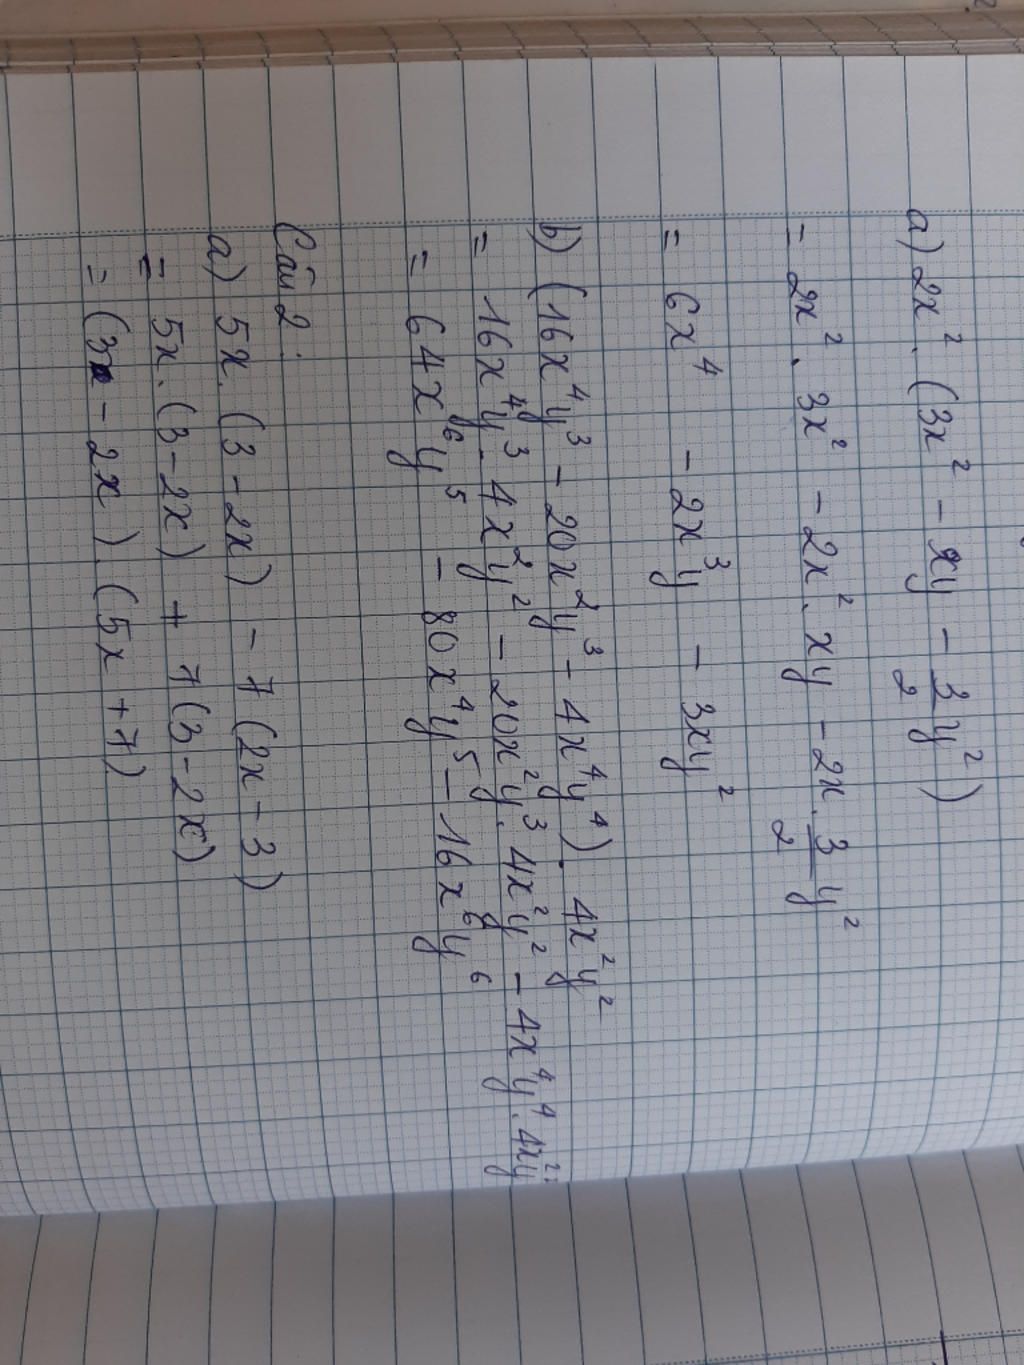 a) 2x². (3x² - xy - 3/2 y²)
= 2x² . 3x² - 2x². xy - 2x . 3/2 y²
= 6x⁴ - 2x³y - 3xy²
b) (16x⁴y³ - 20x²y³ - 4x⁴y⁴). 4x²y²
= 16x⁴y³. 4x²y² - 20x²y³. 4x²y² - 4x⁴y⁴. 4xy²
= 64x⁶y⁵ - 80x⁴y⁵ - 16x⁶y⁶
Câu 2:
a) 5x. (3 - 2x) - 7 (2x - 3)
= 5x. (3 - 2x) + 7 (3 - 2x)
= (3 - 2x). (5x + 7)